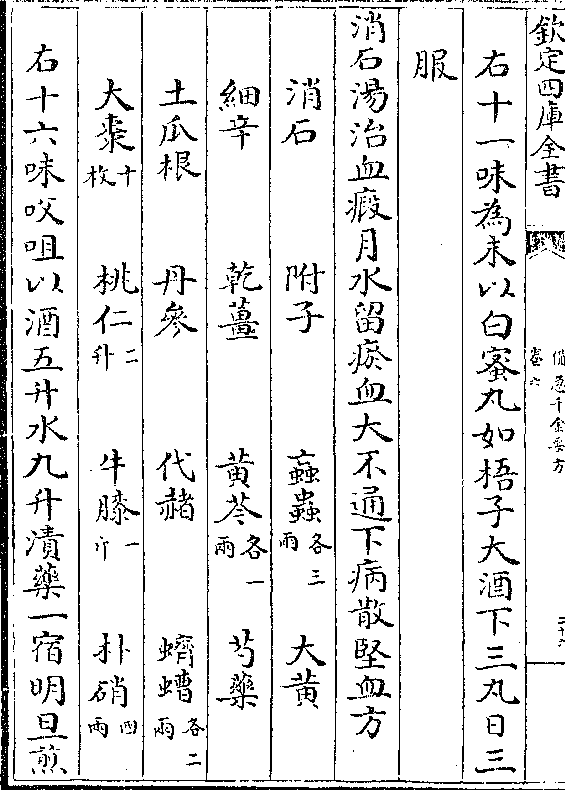 欽定四庫全書
備急千金要方
卷六
右十一味為末以白蜜丸如梧子大酒下三丸日三
服
消石湯治血瘕月水留瘀血大不通下病散堅血方
消石 附子 蝱蟲各三兩 大黄
細辛 乾薑 黄芩各一兩 芍藥
土瓜根 丹參 代赭 蠐螬各二兩
大棗十枚 桃仁二升 牛膝一斤 朴硝四兩
右十六味㕮咀以酒五升水九升漬藥一宿明旦煎